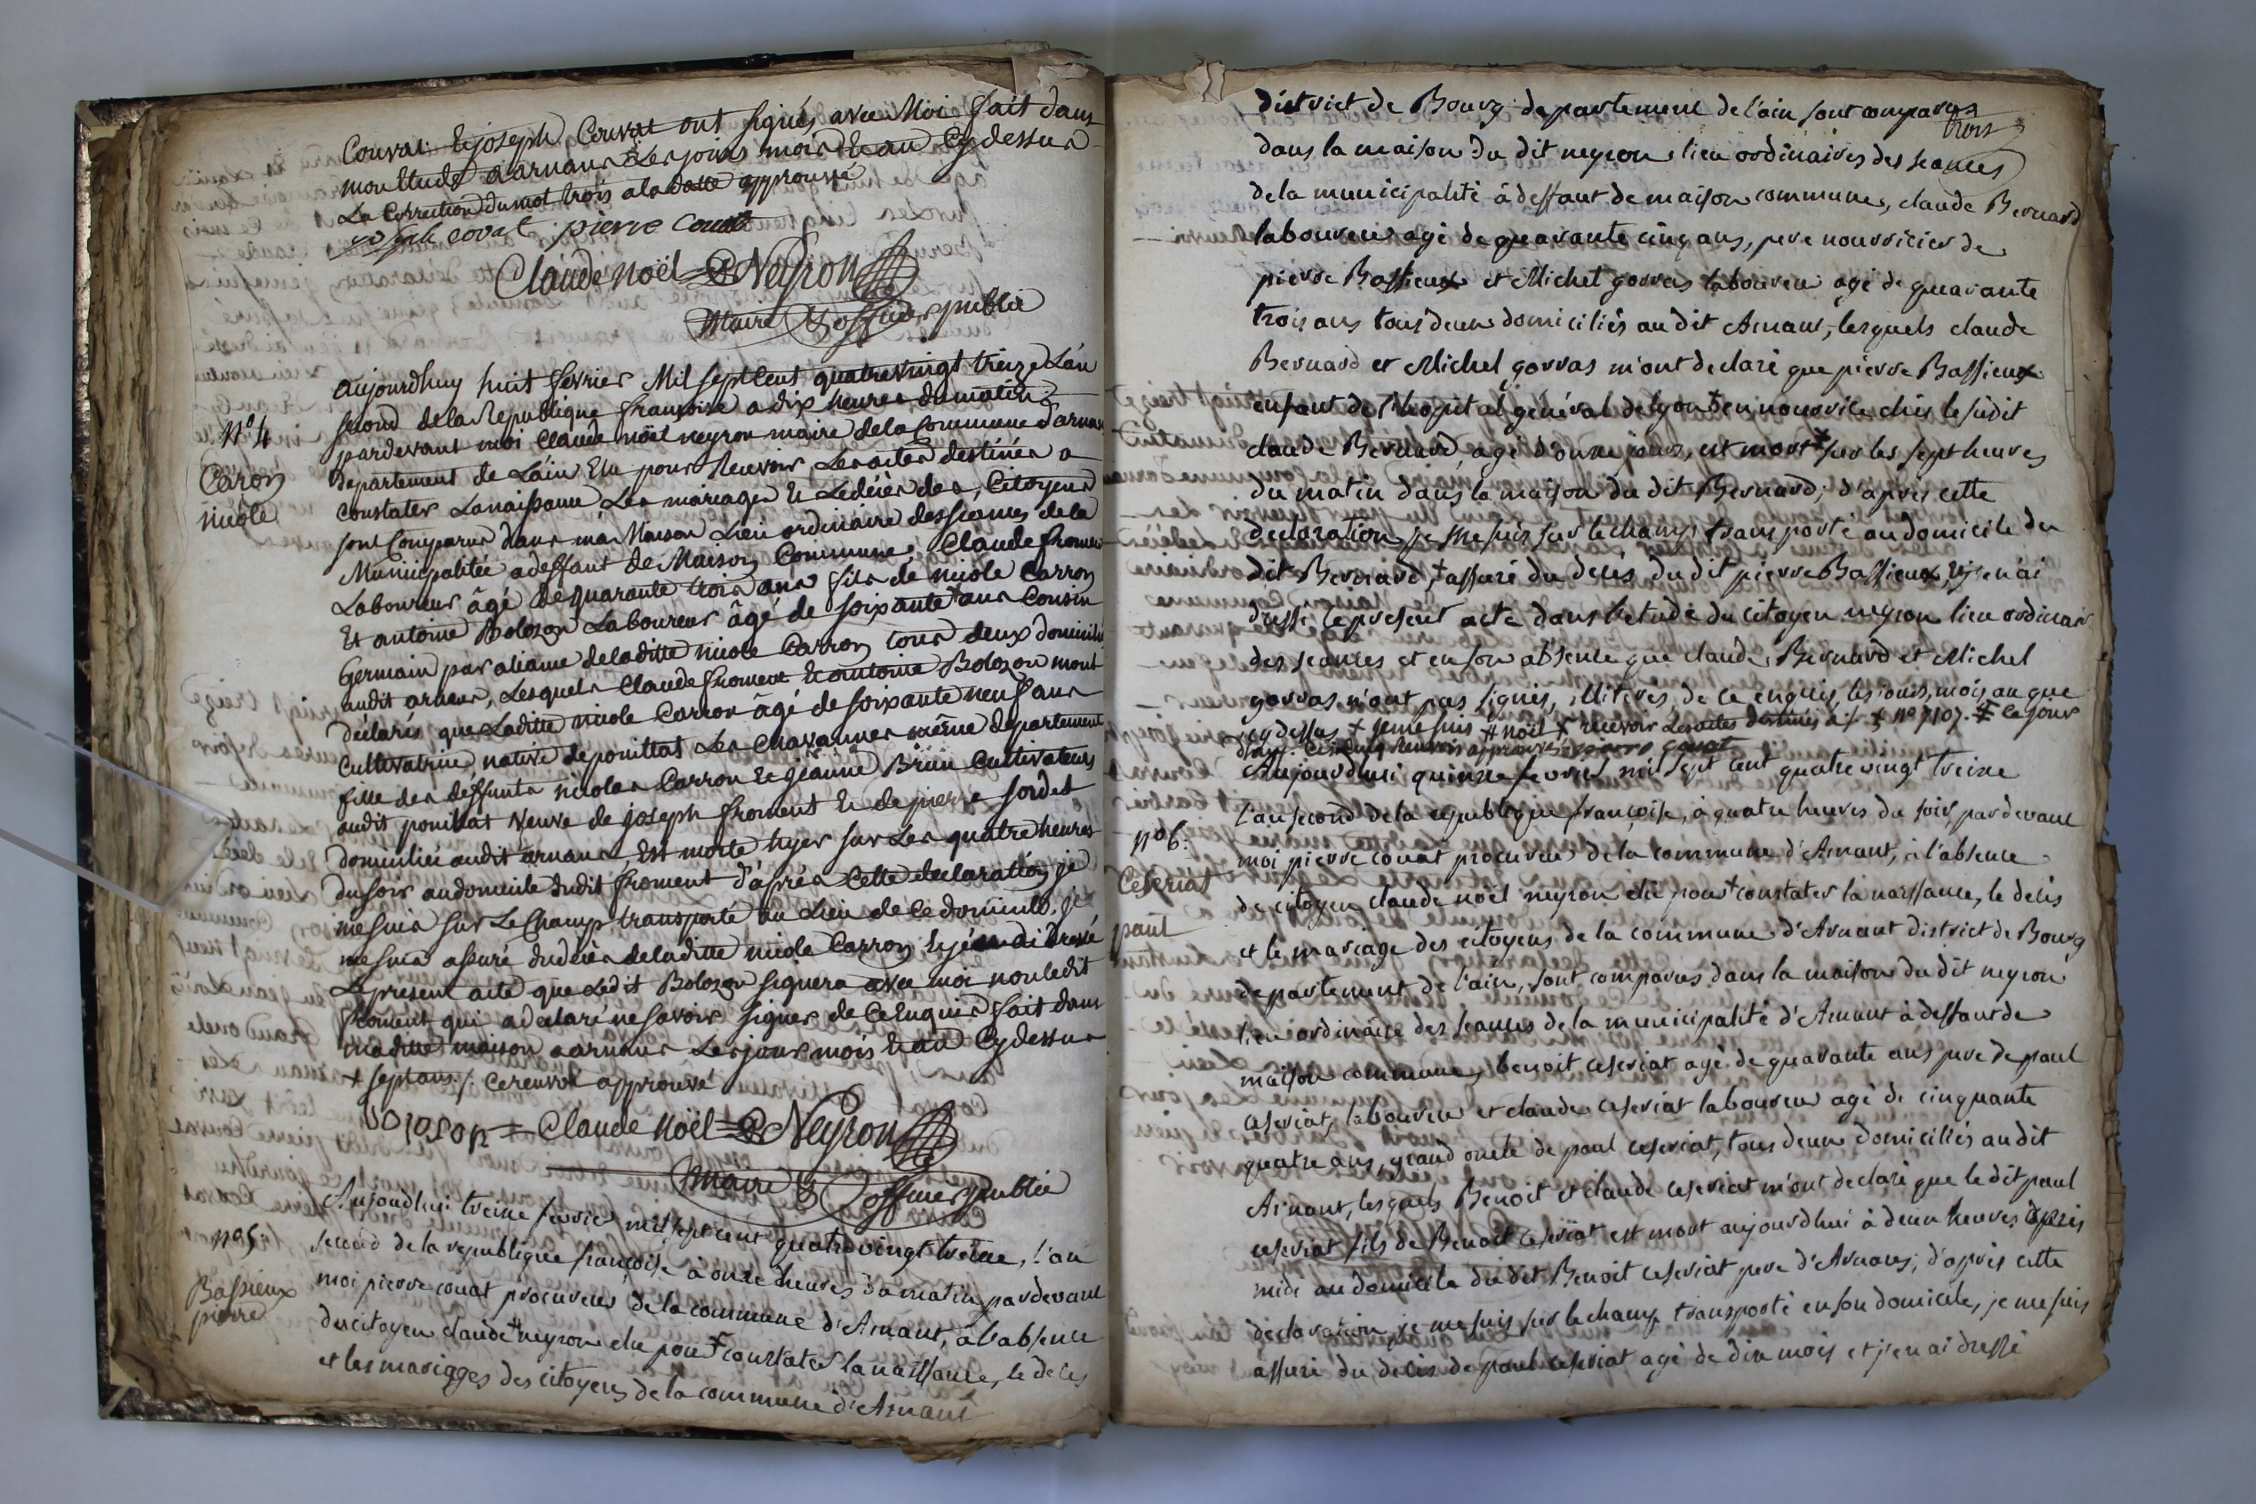 Couvat & joseph Couvat ont signés avec Moi fait dans
mon Etude a arnans Les jours mois & an Cy dessus
La Correction du mot trois a la datte approuvé
joseph covat pierre Couat
Claude noël Neyron
Maire & officier public
aujourdhuy huit fevrier Mil sept Cent quatrevingt treize L'an
second de la Republique françoise a dix heures du matin
n° 4
pardevant moi Claude noël neyron maire de la Commune d'arnans
Caron
nicole
Departement de L'ain Elu pour Recevoir Les actes destinés a
constater La naissance Les mariages & Le décès des Citoyens
sont Comparus dans ma Maison Lieu ordinaire des seances de la
Municipalitée a deffaut de Maison Commune, Claude froment
Laboureur âgé de quarante trois ans fils de nicole Carron
Et antoine Bolozon Laboureur âgé de soixante + ans Cousin
Germain par aliance de laditte nicole Carron tous deux domiciliés
audit arnans, Lesquels Claude froment & antoine Bolozon mont
déclarés que Laditte nicole Carron âgé de soixante neuf ans
Cultivatrice, native de pouillat Les Chavannes même departement
fille des deffunts nicolas Carron & jeanne Brün Cultivateurs
audit pouillat veuve de joseph froment & de pierre sordet
domicilié audit arnans, Est morte hyer sur Les quatre heures
du soir au domicile dudit froment d'après Cette declaration je
me suis sur Le Champ transporté au Lieu de Ce domicile, je
me suis assuré du décès de laditte nicole Carron & j'en ai dressé
Le present acte que Ledit Bolozon signera avec moi non ledit
froment qui a declaré ne savoir signer de Ce Enquis fait dans
maditte maison a arnans Les jour mois & an Cy dessus
+ sept ans ./. Ce renvoi approuvé
Bolozon = Claude noël Neyron
Maire & officier public
Aujourdhui treize fevrier mil sept cent quatre vingt treize, l'an
n° 5.
second de la republique françoise à onze heures du matin pardevant
Bassieux
pierre
moi pierre couat procureur de la commune d'Arnant, à l'absence
du citoyen claude # neyron elu pour + constater la naissance, le deces
et les mariages des citoyens de la commune d'Arnant
district de Bourg departement de l'ain sont comparus
trois
dans la maison du dit neyron lieu ordinaires des seances
de la municipalité à deffaut de maison commune, claude Bernard
laboureur agé de quarante cinq ans, pere nourricier de
pierre Bassieux et Michel gorras laboureur agé de quarante
trois ans tous deux domiciliés au dit Arnans, lesquels claude
Bernard et Michel gorras m'ont declaré que pierre Bassieux
enfant de l'hopital general de lyon + en nourrice chès le susdit
claude Bernard, agé d'onze jours, est mort sur les sept heures
du matin dans la maison du dit Bernard, d'après cette
declaration je me suis sur le champ transporté au domicile du
dit Bernard, + assuré du decès du dit pierre Bassieux, & j'en ai
dressé le present acte dans l'etude du citoyen neyron lieu ordinair
des seances et en son absence que claude Bernard et Michel
gorras n'ont pas signés, illiteres de ce enquis, les jours, mois an que
cy dessus + je me suis # noël + recevoir Les actes destinés à ./. + n° 7107. # ce jour
Aujourdhui quinze fevrier mil sept cent quatre vingt treize
l'an second de la republique françoise, à quatre heures du soir pardevant
n° 6.
moi pierre couat procureur de la commune d'Arnant, à l'absence
Ceseriat
paul
de citoyen claude noël neyron elu pour + constater la naissance, le decès
et le mariage des citoyens de la commune d'Arnant district de Bourg
departement de l'ain, sont comparus dans la maison du dit neyron
lieu ordinaire des seances de la municipalité d'Arnant à deffaut de
maison commune, benoit ceseriat agé de quarante ans pere de paul
ceseriat, laboureur et claude ceseriat laboureur agé de cinquante
quatre ans, grand oncle de paul ceseriat, tous deux domiciliés au dit
Arnant, lesquels Benoit et claude ceseriat m'ont declaré que le dit paul
ceseriat fils de Benoit ceseriat est mort aujourdhui à deux heures après
midi au domicile du dit Benoit ceseriat pere d'Arnans; d'après cette
declaration je me suis sur le champ transporté en son domicile, je me suis
assuré du decès de paul ceseriat agé de dix mois et j'en ai dressé